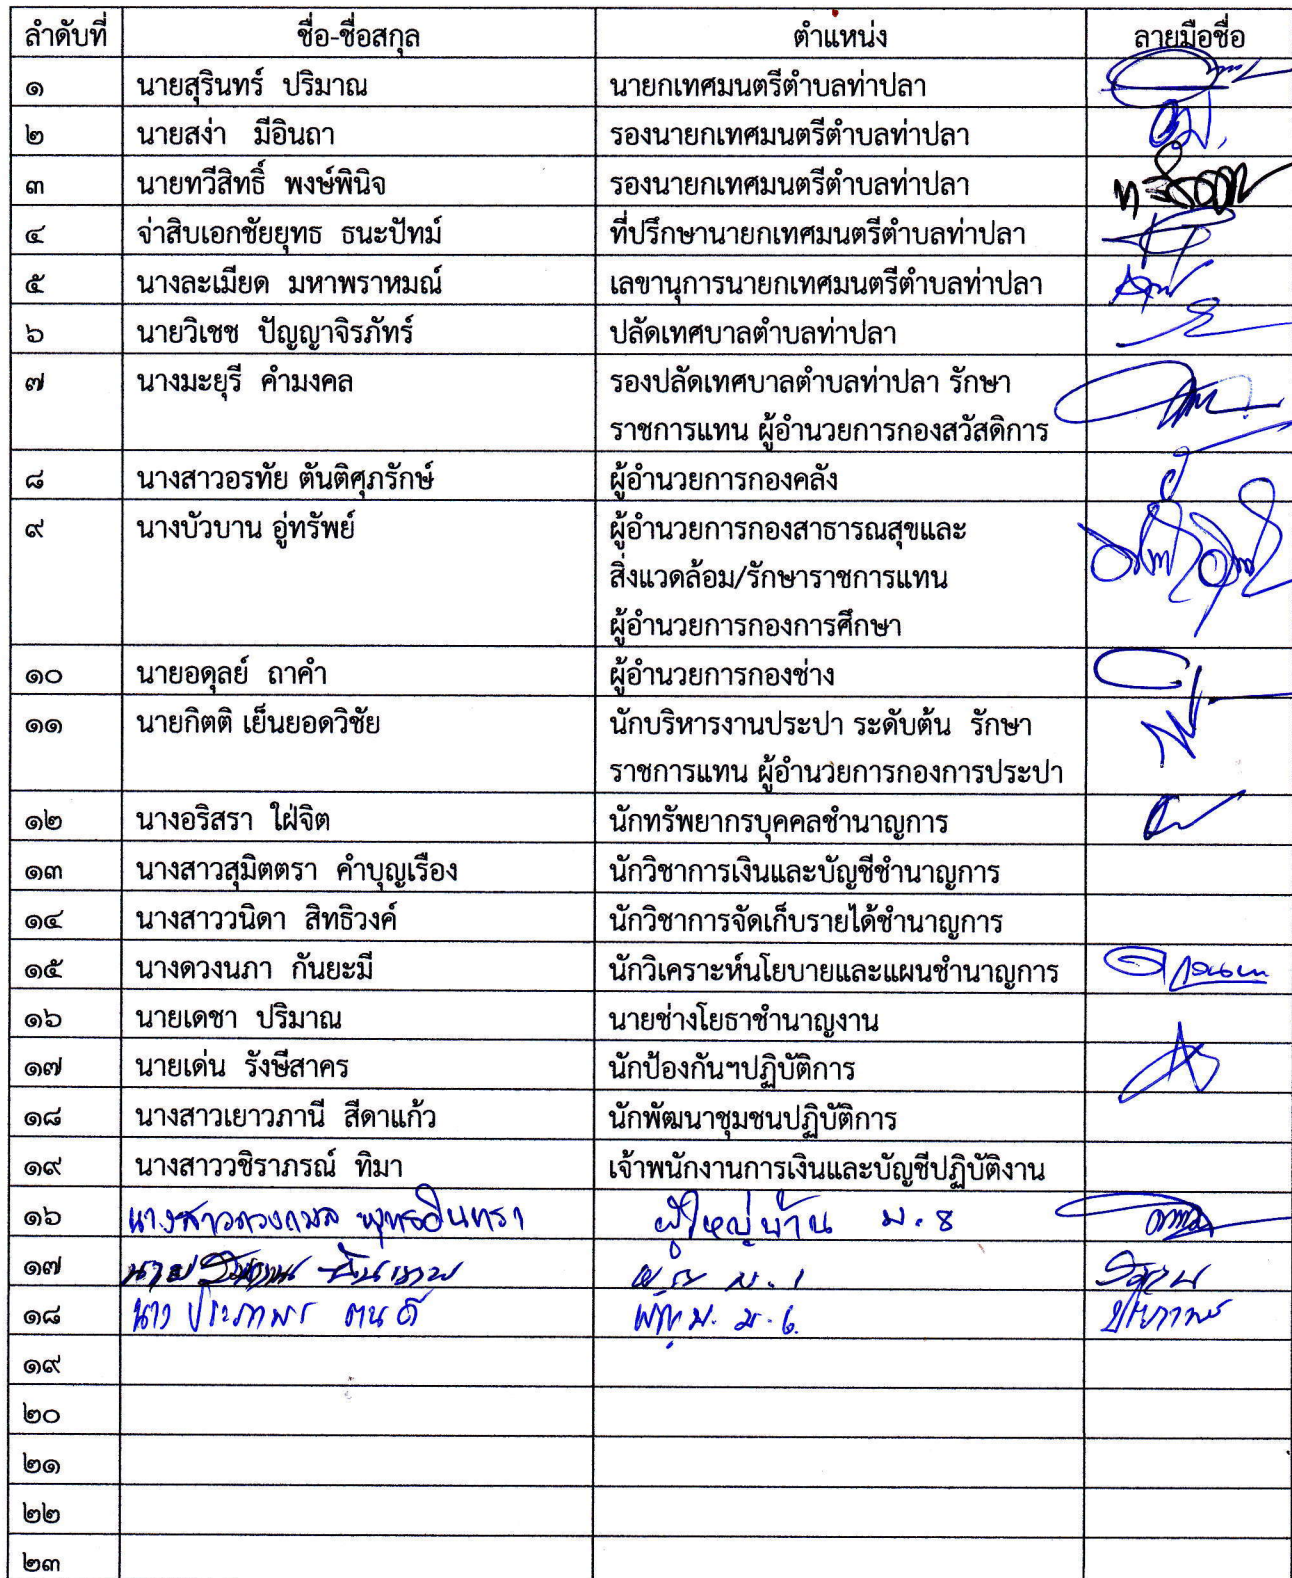 ลำดับที่ ชื่อ-ชื่อสกุล ตำแหน่ง ลายมือชื่อ
๑ นายสุรินทร์ ปริมาณ นายกเทศมนตรีตำบลท่าปลา
๒ นายสง่า มีอินถา รองนายกเทศมนตรีตำบลท่าปลา
๓ นายทวีสิทธิ์ พงษ์พินิจ รองนายกเทศมนตรีตำบลท่าปลา
๔ จ่าสิบเอกชัยยุทธ ธนะปัทม์ ที่ปรึกษานายกเทศมนตรีตำบลท่าปลา
๕ นางละเมียด มหาพราหมณ์ เลขานุการนายกเทศมนตรีตำบลท่าปลา
๖ นายวิเชช ปัญญาจิรภัทร์ ปลัดเทศบาลตำบลท่าปลา
๗ นางมะยุรี คำมงคล รองปลัดเทศบาลตำบลท่าปลา รักษา
ราชการแทน ผู้อำนวยการกองสวัสดิการ
๘ นางสาวอรทัย ตันติศุภรักษ์ ผู้อำนวยการกองคลัง
๙ นางบัวบาน อู่ทรัพย์ ผู้อำนวยการกองสาธารณสุขและ
สิ่งแวดล้อม/รักษาราชการแทน
ผู้อำนวยการกองการศึกษา
๑๐ นายอดุลย์ ถาคำ ผู้อำนวยการกองช่าง
๑๑ นายกิตติ เย็นยอดวิชัย นักบริหารงานประปา ระดับต้น รักษา
ราชการแทน ผู้อำนวยการกองการประปา
๑๒ นางอริสรา ใฝ่จิต นักทรัพยากรบุคคลชำนาญการ
๑๓ นางสาวสุมิตตรา คำบุญเรือง นักวิชาการเงินและบัญชีชำนาญการ
๑๔ นางสาววนิดา สิทธิวงค์ นักวิชาการจัดเก็บรายได้ชำนาญการ
๑๕ นางดวงนภา กันยะมี นักวิเคราะห์นโยบายและแผนชำนาญการ
๑๖ นายเดชา ปริมาณ นายช่างโยธาชำนาญงาน
๑๗ นายเด่น รังษีสาคร นักป้องกันฯปฏิบัติการ
๑๘ นางสาวเยาวภานี สีดาแก้ว นักพัฒนาชุมชนปฏิบัติการ
๑๙ นางสาววชิราภรณ์ ทิมา เจ้าพนักงานการเงินและบัญชีปฏิบัติงาน
๑๖ นางสาวดวงกมล พุทธอินทรา ผู้ใหญ่บ้าน ม.8
๑๗ นาย ม.1
๑๘ นาง ประภาพร ม.6
๑๙
๒๐
๒๑
๒๒
๒๓